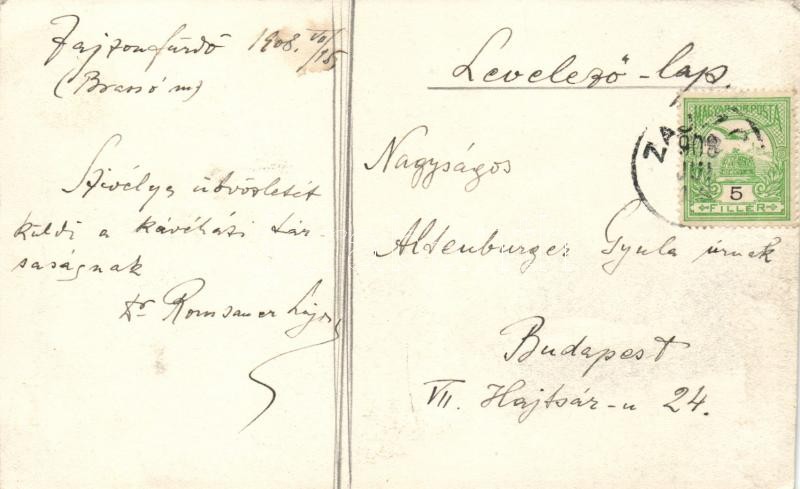 Zajzonfürdő 1908. VII/15
(Brassó m)
Szívélyes üdvözletét
küldi a kávéházi tár-
saságnak
Dr Romsauer Lajos
Levelező-lap.
MAGYAR KIR. POSTA
5
FILLÉR
ZAJZON
908
JUL
Nagyságos
Altenburger Gyula úrnak
Budapest
VII. Hajtsár-u 24.